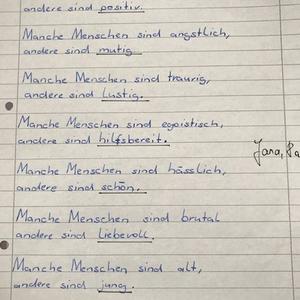 andere sind positiv.
Manche Menschen sind ängstlich,
andere sind mutig
Manche Menschen sind traurig,
andere sind Lustig.
Manche Menschen sind egoistisch,
andere sind hilfsbereit.
Manche Menschen sind hässlich,
andere sind schön.
Manche Menschen sind brutal
andere sind Liebevoll.
Manche Menschen sind alt,
andere sind jung.
Jana,